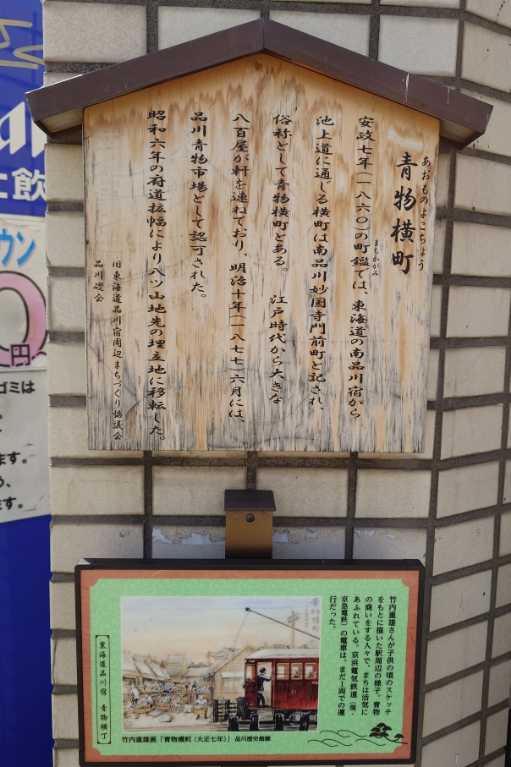 あおものよこちょう
青物横町
安政七年(一八六〇)の町鑑では、東海道の南品川宿から
まちかがみ
池上道に通じる横町は南品川妙国寺門前町と記され、
俗称として青物横町とある。 江戸時代から大きな
八百屋が軒を連ねており、明治十年(一八七七)六月には、
品川青物市場として認可された。
昭和六年の府道拡幅により八ツ山地先の埋立地に移転した。
旧東海道品川宿周辺まちづくり協議会
品川壹会
竹内重雄さんが子供の頃のスケッチ
をもとに描いた駅周辺の様子。青物
の商いをする人々で、まちは活気に
あふれている。京浜電気鉄道(現・
京急電鉄)の電車は、まだ一両での運
行だった。
【東海道品川宿 青物横丁】
竹内重雄画「青物横町(大正七年)」 品川歴史館蔵
ウン
0円
ゴミは
ます。
う、
ます。
に飲